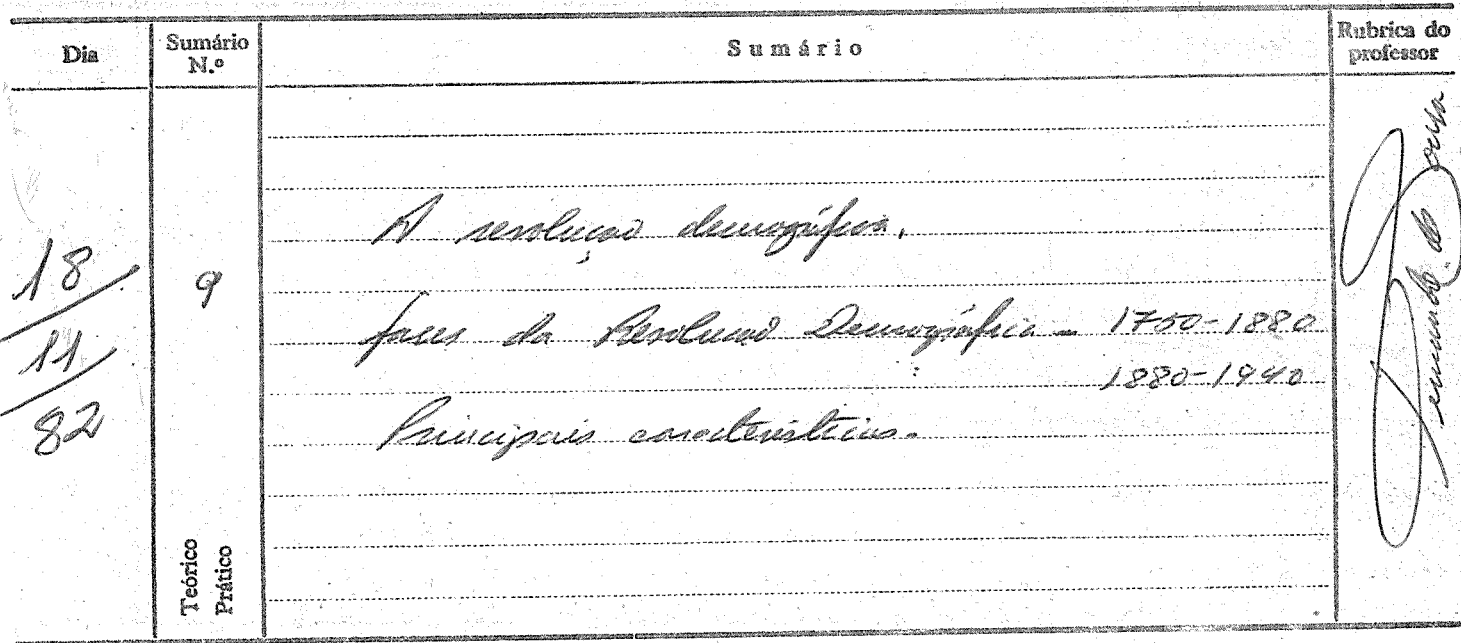 Dia
Sumário N.º
Sumário
Rubrica do professor
18
11
82
9
A revolução demográfica.
fases da Revolução Demográfica - 1750-1880
1880-1940
Principais características.
Teórico
Prático